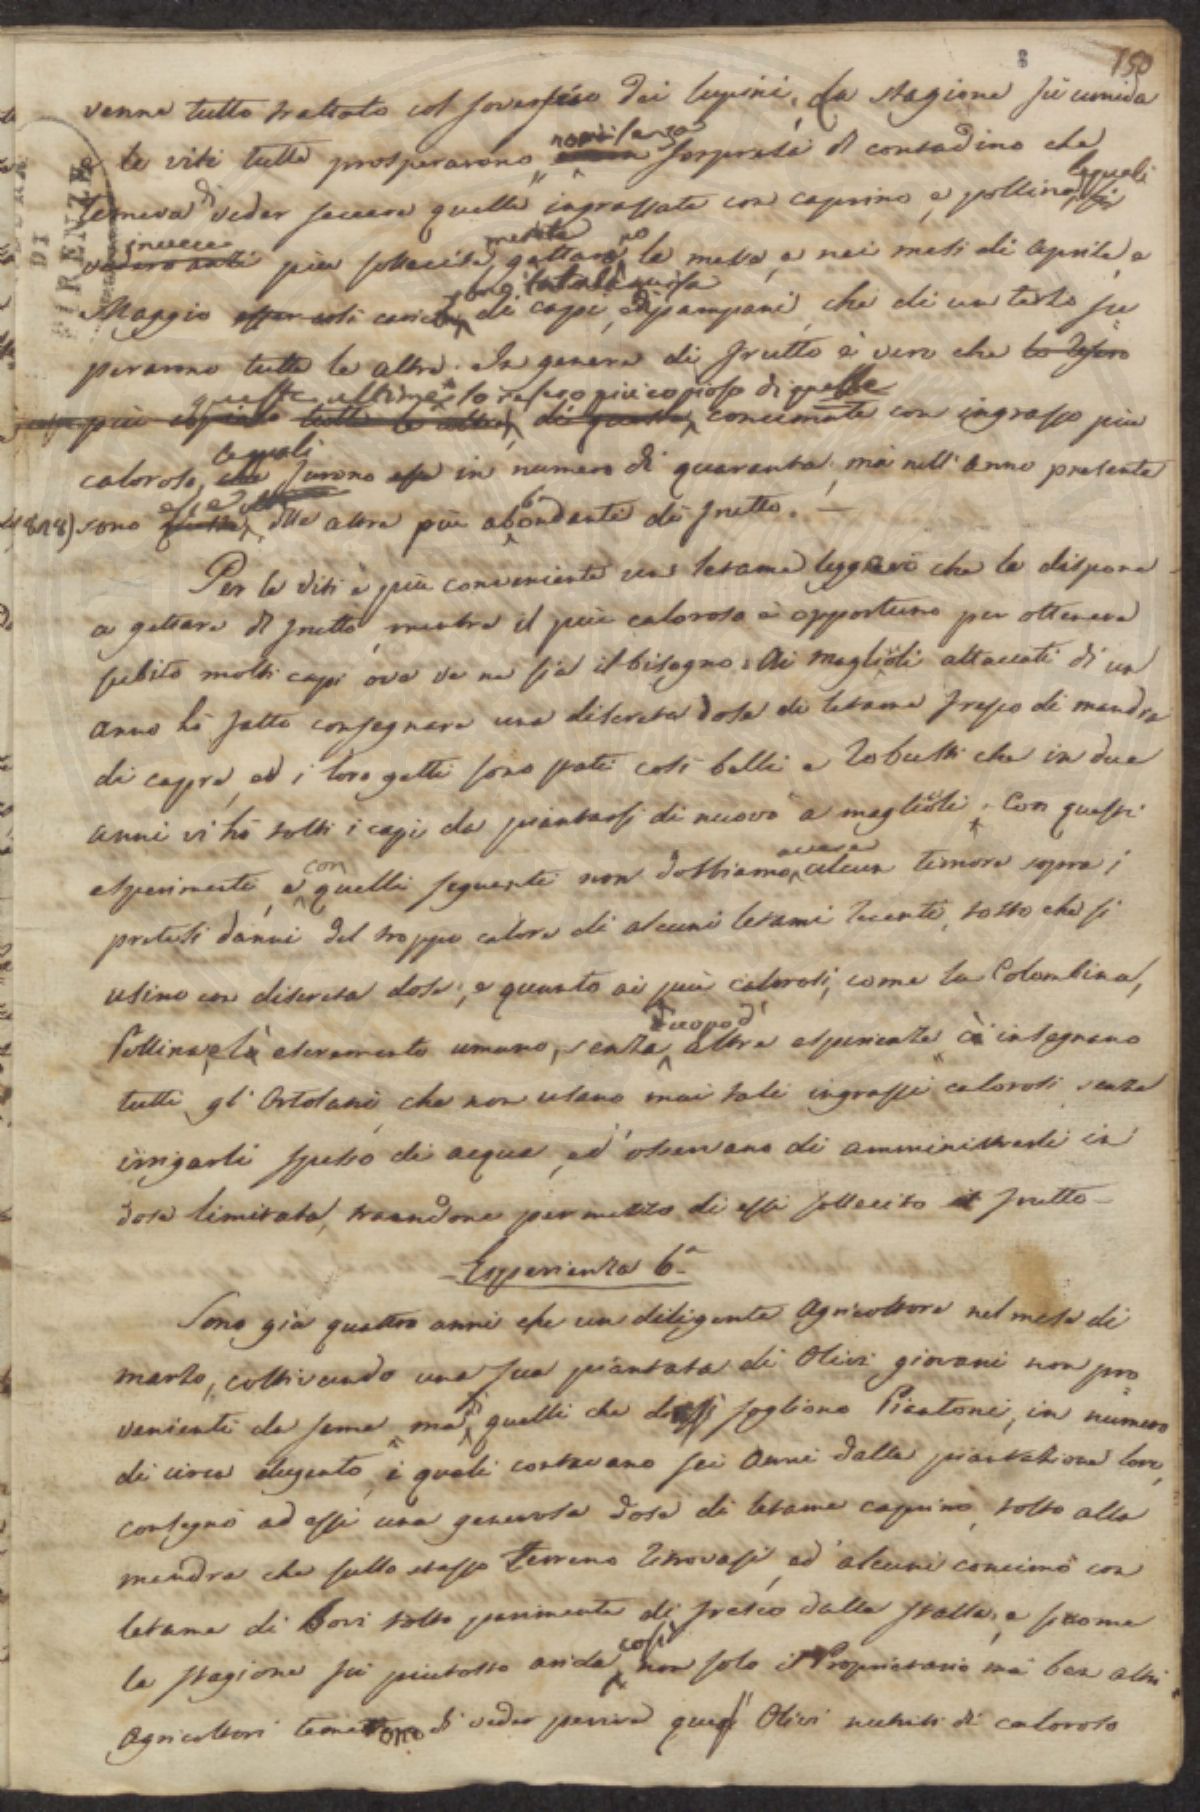 150
venne tutto trattato col sovescio dei lupini. La stagione fù umida
e le viti tutte prosperarono, non senza sorpresa di contadino che
temeva di veder seccare quelle ingrassate con caprino, e pollina, le quali
invece più sollecitamente gettarono la messa, e nei mesi di Aprile, e
Maggio di capi, e pampani, che di un terzo su
perarono tutte le altre. In genere di frutto è vero che
queste ultime lo resero più copioso di quelle concimate con ingrasso più
caloroso, le quali furono esse in numero di quaranta; mà nell'anno presente
sono alle altre più abbondanti di frutto. —
Per le viti è più conveniente un letame leggero che le dispone
a gettare di frutto, mentre il più caloroso è opportuno per ottenere
subito molti capi ove ve ne sia il bisogno. Ai magliuoli attaccati di un
anno hò fatto consegnare una discreta dose di letame fresco di mandra
di capre, ed i loro getti sono stati così belli e robusti che in due
anni vi hò tolti i capi da piantarsi di nuovo a magliuoli. Con questi
esperimenti, e con quelli seguenti non dobbiamo avere alcun timore sopra i
pretesi danni del troppo calore di alcuni letami recenti, tosto che si
usino con discreta dose; e quanto ai più calorosi, come la Colombina,
Pollina, e lo escremento umano, senza d'uopo d'altre esperienze ci insegnano
tutti gl'Ortolani che non usano mai tali ingrassi calorosi senza
irrigarli spesso di acqua, ed osservano di amministrarli in
dose limitata, traendone per mezzo di essi sollecito frutto —
Esperienza 6.a
Sono già quattro anni che un diligente Agricoltore nel mese di
marzo, coltivando una sua piantata di Olivi giovani non pro
venienti da seme, ma di quelli che dirsi sogliono Piantoni, in numero
di circa dugento, i quali contavano sei Anni dalla piantazione loro,
consegnò ad essi una generosa dose di letame caprino, tolto alla
mandra che sullo stesso terreno ritrovasi, ed alcuni concimò con
letame di Bovi tolto parimente di fresco dalla stalla; e siccome
la stagione fù piuttosto arida, così non solo il Proprietario mà ben altri
Agricoltori temettero di veder perire quegl'Olivi nutriti di caloroso